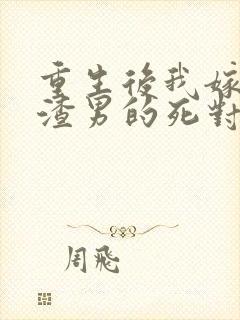 重生後我嫁
渣男的死對
周飛